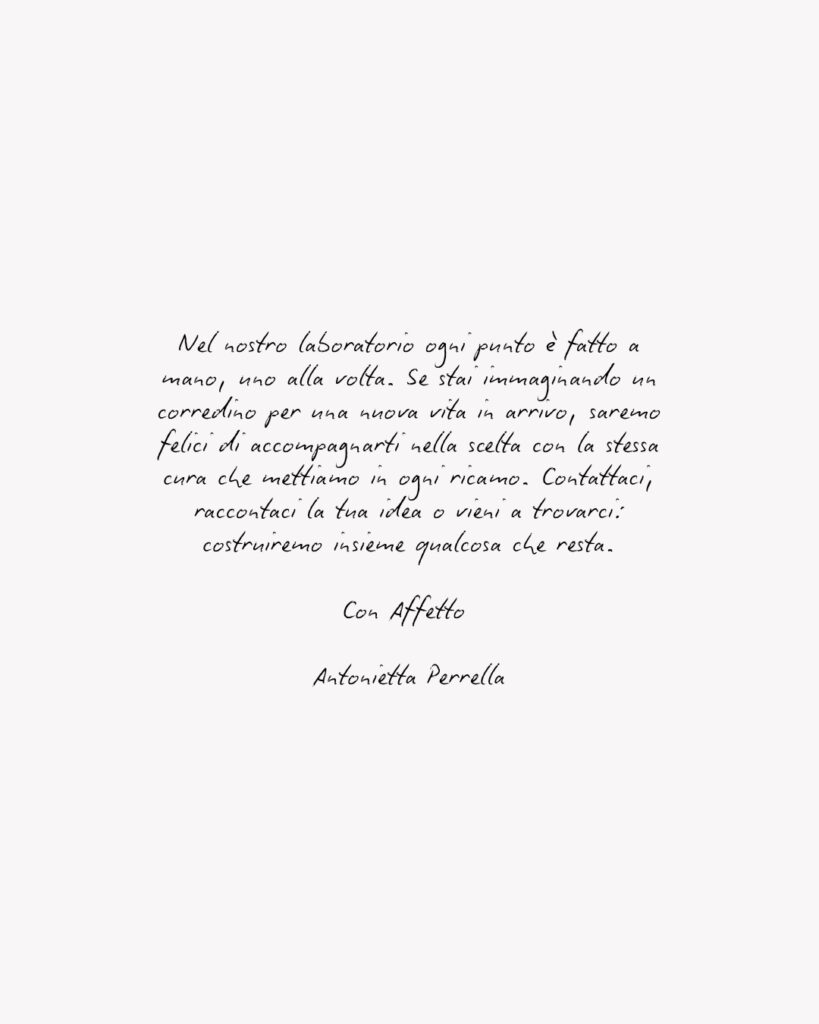 Nel nostro laboratorio ogni punto è fatto a
mano, uno alla volta. Se stai immaginando un
corredino per una nuova vita in arrivo, saremo
felici di accompagnarti nella scelta con la stessa
cura che mettiamo in ogni ricamo. Contattaci,
raccontaci la tua idea o vieni a trovarci:
costruiremo insieme qualcosa che resta.
Con Affetto
Antonietta Perrella